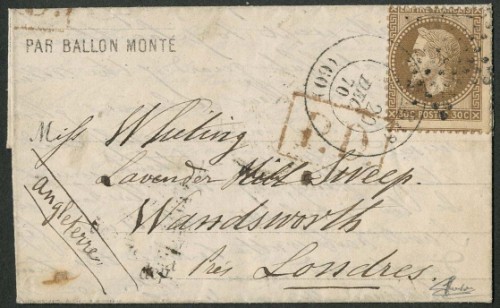 PAR BALLON MONTÉ
(60)
DEC
70
30C POSTES 30C
P.D
Miss Wheling
Lavender Hill Sweep.
Wandsworth
Près Londres.
Angleterre